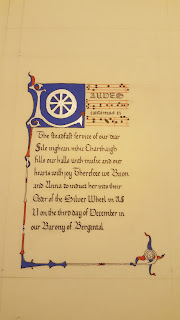 LAUDES
The steadfast service of our dear
Sile inghean mhic Charthaigh
fills our halls with music and our
hearts with joy Therefore we
and Anna to induct her into their
Order of the Silver Wheel on AS
LI on the third day of December in
our Barony of Bergental